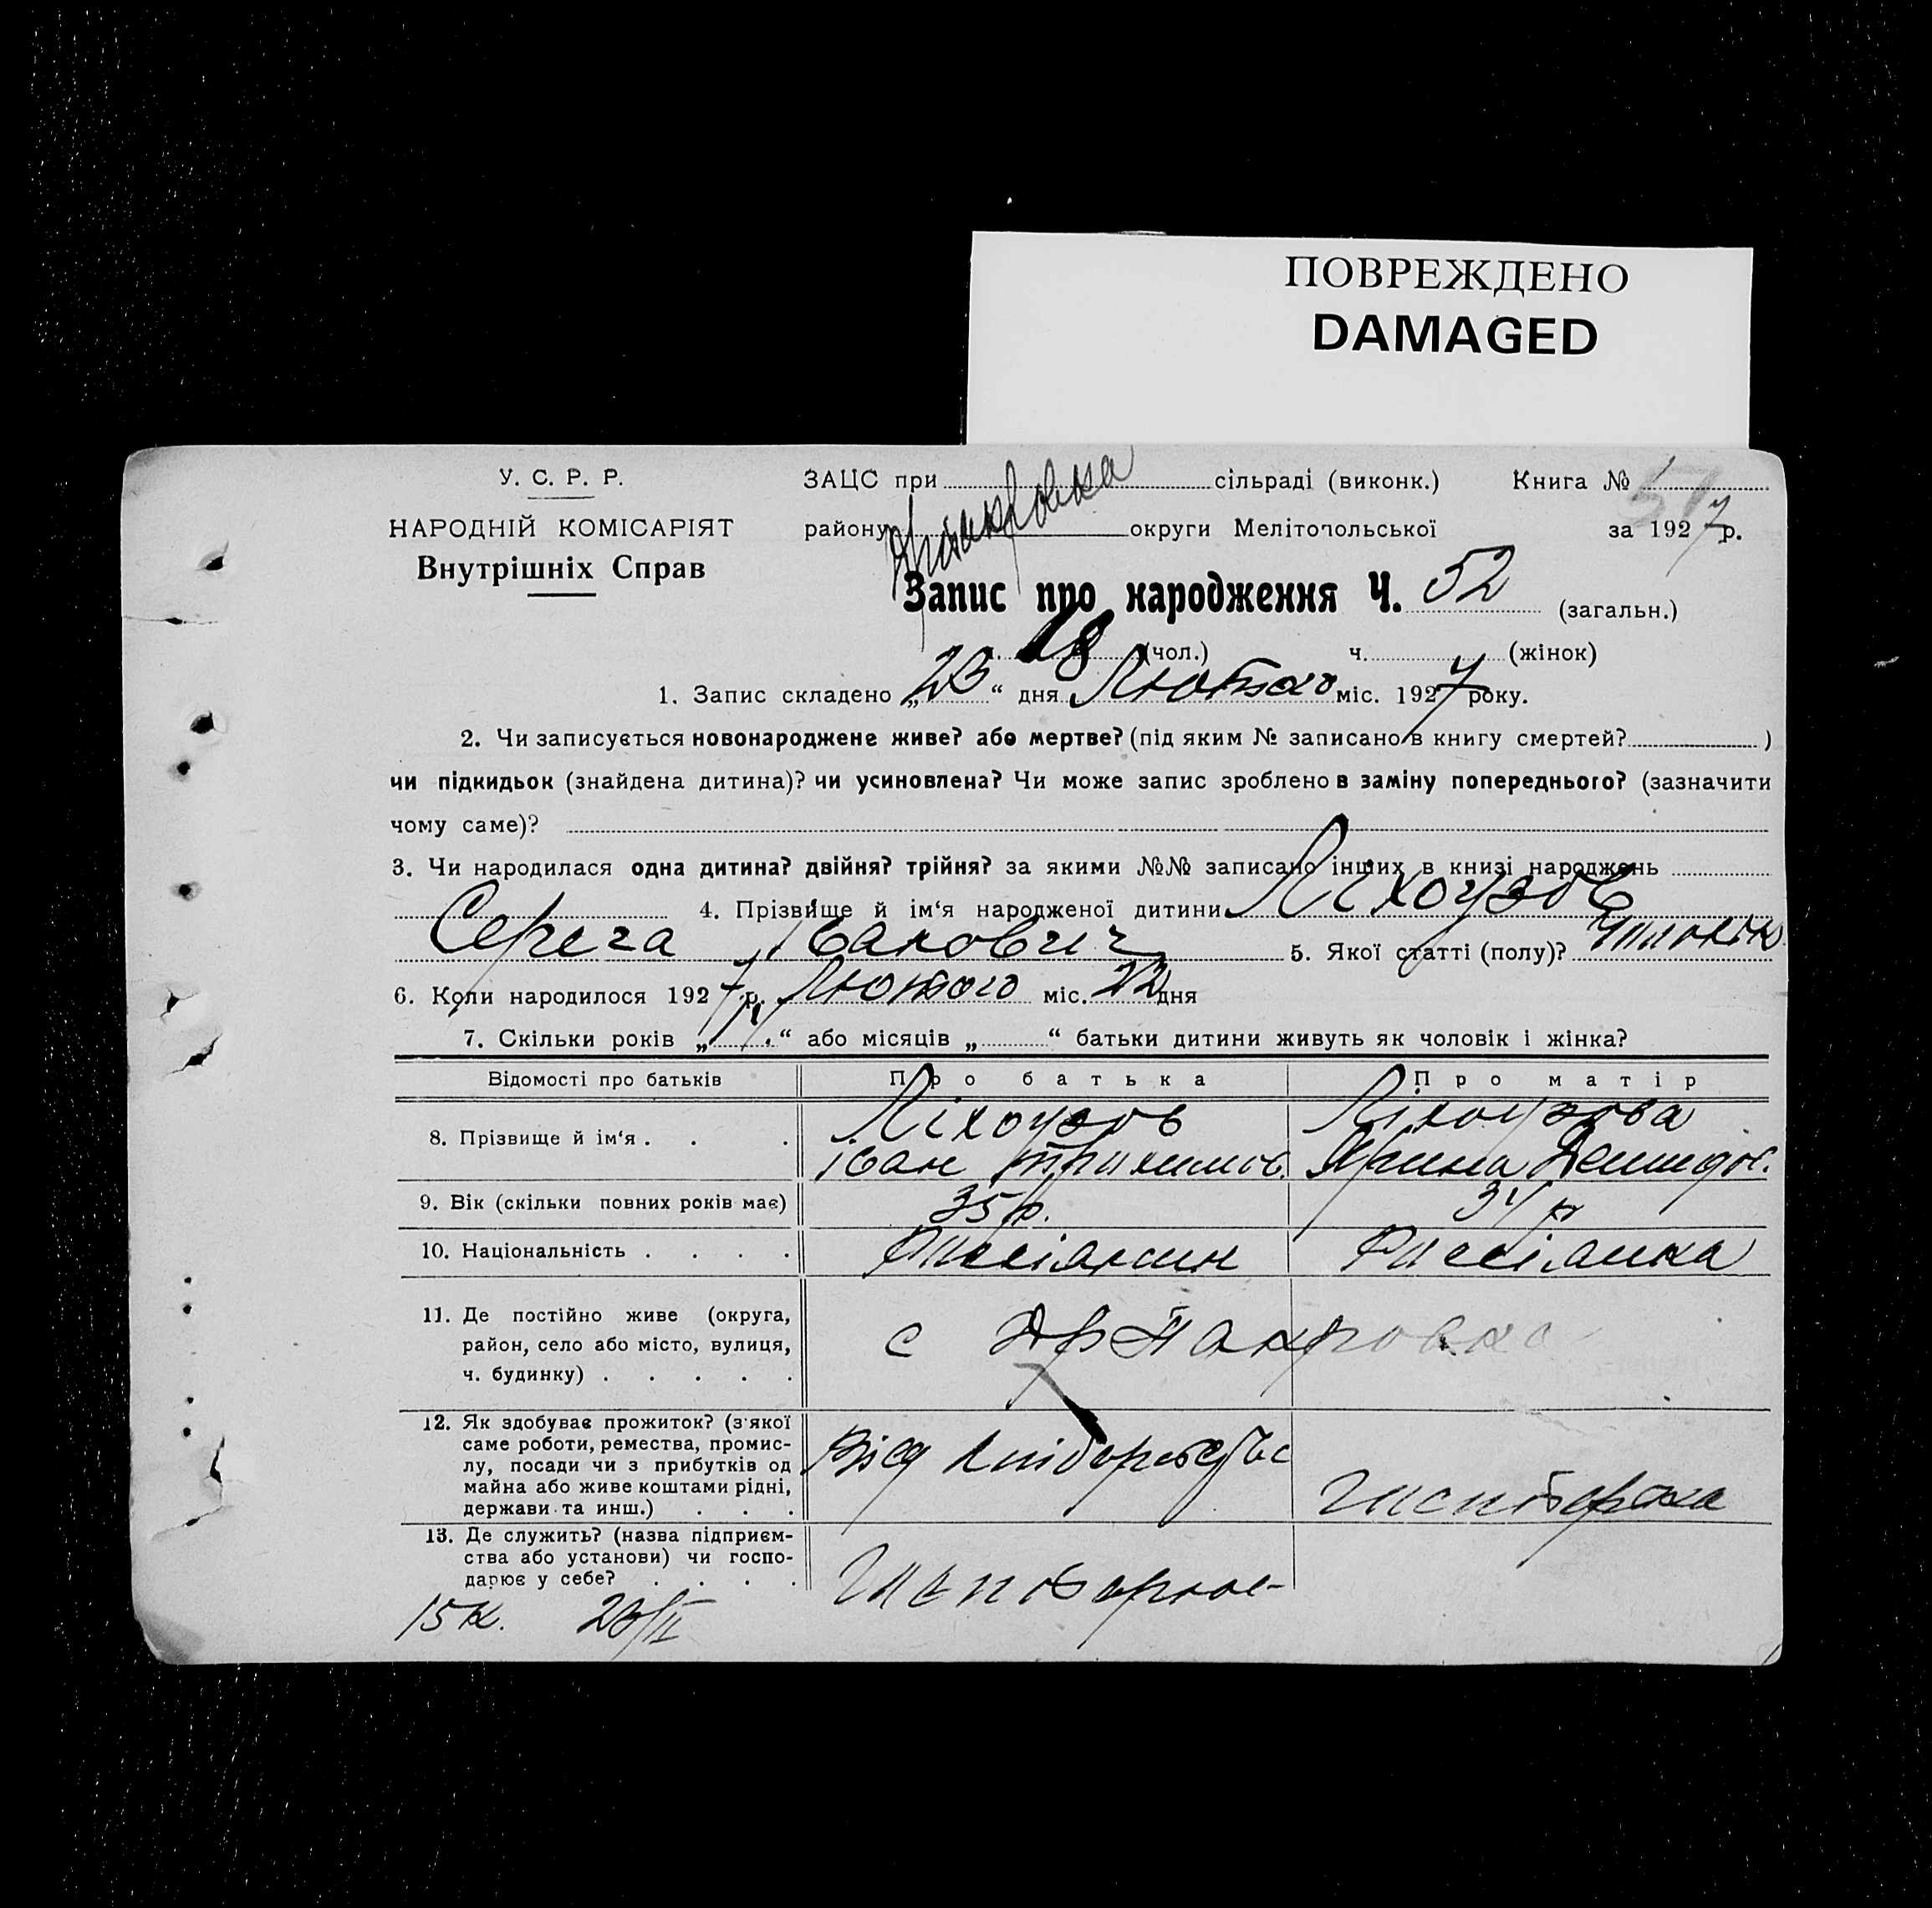 ПОВРЕЖДЕНО
DAMAGED
У. С. Р. Р.
НАРОДНІЙ КОМІСАРІЯТ
Внутрішніх Справ
ЗАЦС при сільраді (виконк.) Книга №
району округи Мелітопольської за 1927 р.
Запис про народження Ч. 52 (загальн.)
18 (чол.) ч. (жінок)
1. Запис складено „23“ дня Лютого міс. 1927 року.
2. Чи записується новонароджене живе? або мертве? (під яким № записано в книгу смертей? )
чи підкидьок (знайдена дитина)? чи усиновлена? Чи може запис зроблено в заміну попереднього? (зазначити
чому саме)?
3. Чи народилася одна дитина? двійня? трійня? за якими №№ записано інших в книзі народжень
4. Прізвище й ім‘я народженої дитини Ліхоузов
Серега Іванович 5. Якої статті (полу)?
6. Коли народилося 1927 р. Лютого міс. 22 дня
7. Скільки років „ “ або місяців „ “ батьки дитини живуть як чоловік і жінка?
Відомості про батьків Про батька Про матір
8. Прізвище й ім‘я . . . Ліхоузов Ліхоузова
іван
9. Вік (скільки повних років має) 35 р. 34 р
10. Національність . . . .
11. Де постійно живе (округа,
район, село або місто, вулиця,
ч. будинку) . . . . .
с
12. Як здобуває прожиток? (з'якої
саме роботи, ремества, промис-
лу, посади чи з прибутків од
майна або живе коштами рідні,
держави та инш.) . . .
Від
13. Де служить? (назва підприєм-
ства або установи) чи госпо-
дарює у себе? . . . .
15 к. 23/II